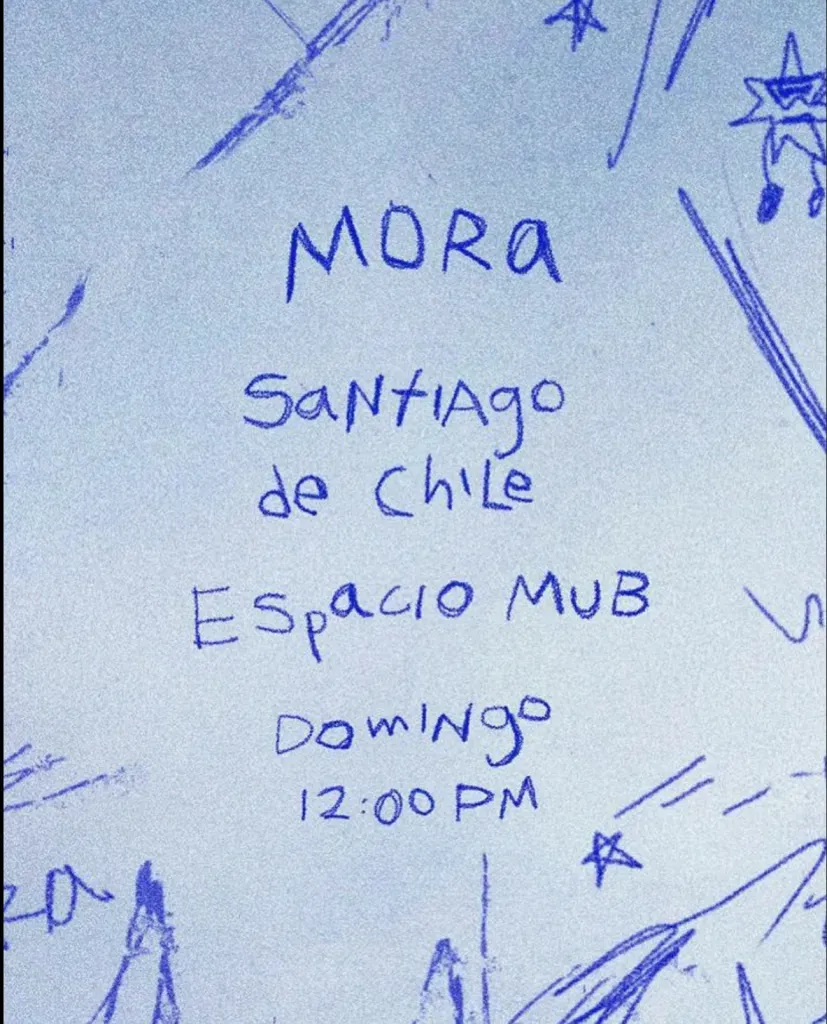 MORa
SaNtIAgo
de ChiLe
ESpacio MUB
DomINgo
12:00 PM